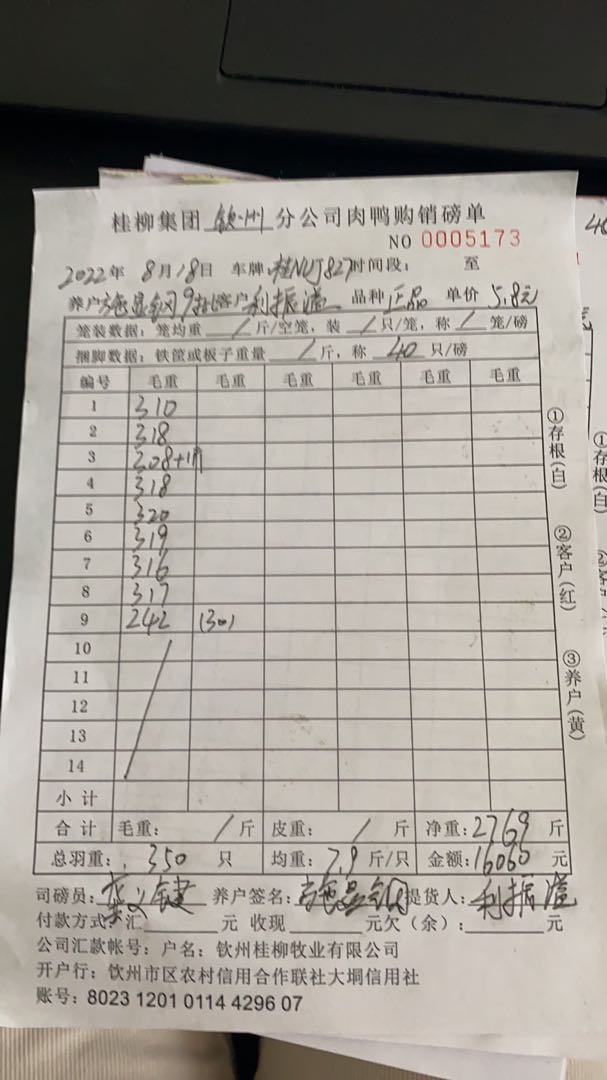 桂柳集团 钦州 分公司肉鸭购销磅单
NO 0005173
2022年 8月18日 车牌:桂NUJ827时间段: 至
养户施显钢9批客户利振溢 品种正品 单价5.8元
笼装数据:笼均重 / 斤/空笼,装 / 只/笼,称 / 笼/磅
捆脚数据:铁筐或板子重量 / 斤,称 40 只/磅
编号 毛重 毛重 毛重 毛重 毛重 毛重
1 310
2 318
3 308+1
4 318
5 320
6 319
7 316
8 317
9 242 (30)
10
11
12
13
14
小计
合计 毛重: / 斤 皮重: / 斤 净重:2769 斤
总羽重: 350 只 均重:7.9 斤/只 金额:16060 元
司磅员: 养户签名:施显钢 提货人:利振溢
付款方式:汇 元 收现 元欠(余): 元
公司汇款帐号:户名:钦州桂柳牧业有限公司
开户行:钦州市区农村信用合作联社大垌信用社
账号:8023 1201 0114 4296 07
①存根(白)
②客户(红)
③养户(黄)
①存根(白)